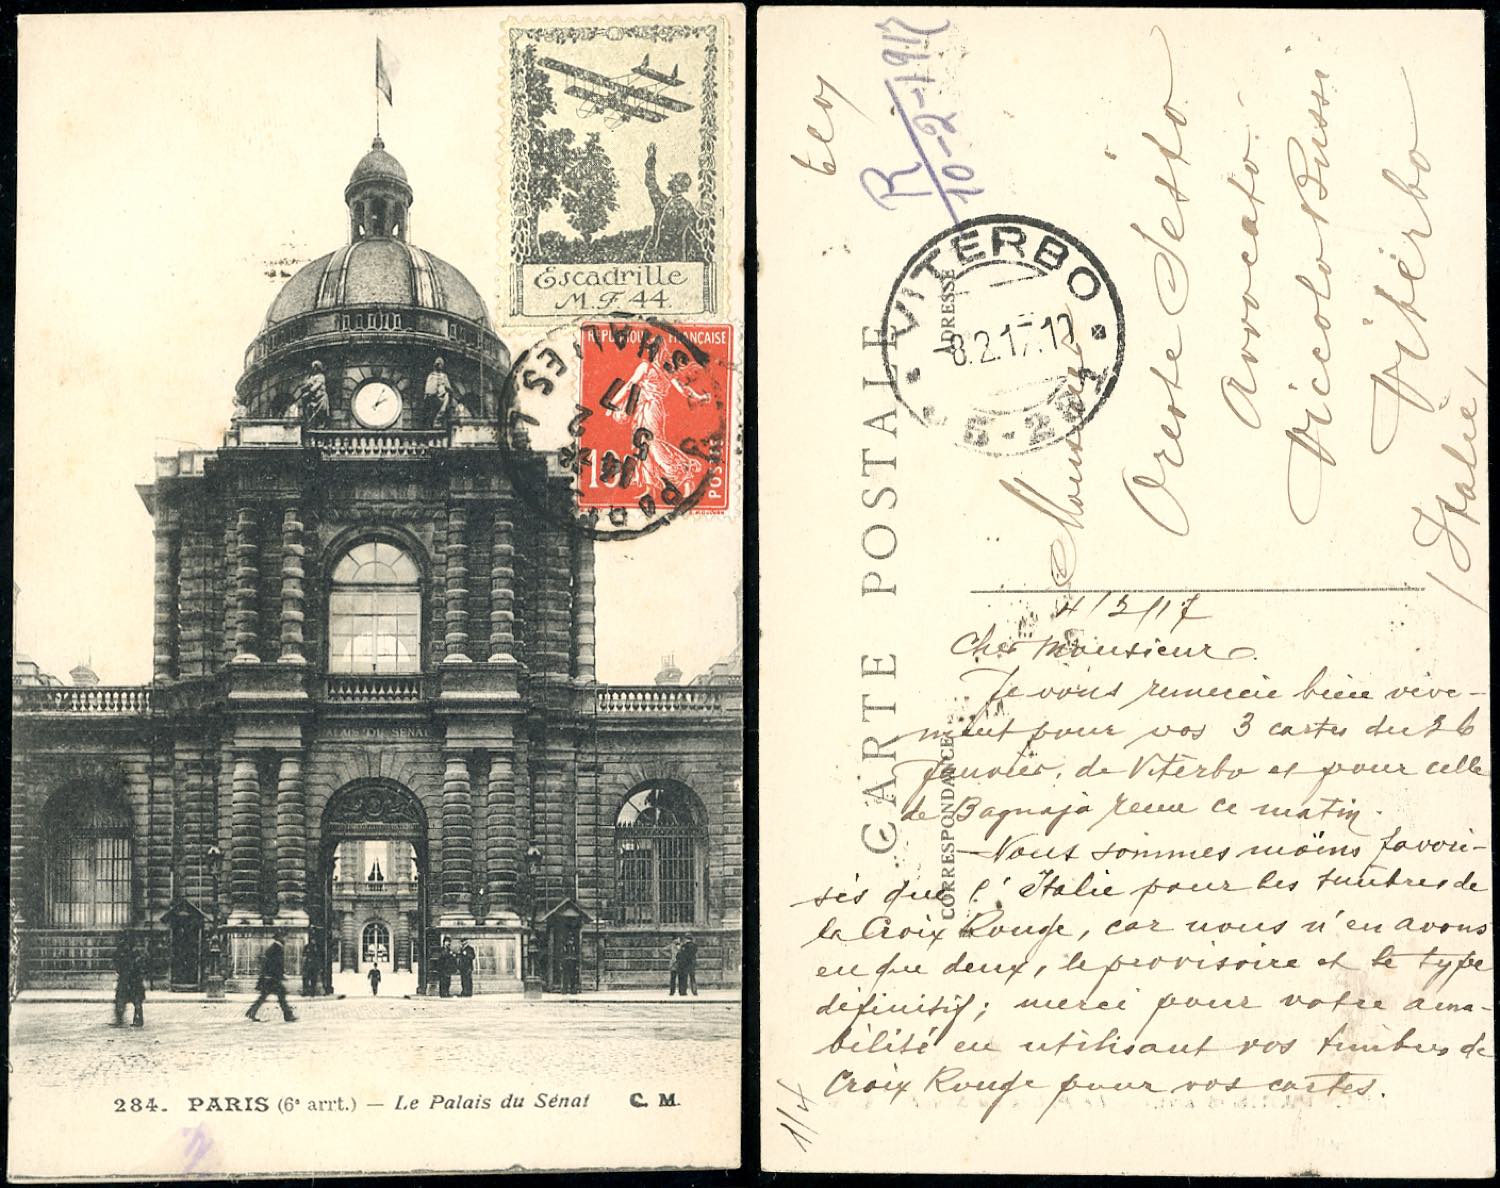 Escadrille
M.F. 44
REPUBLIQUE FRANÇAISE
10
POSTES
14
5
2
17
PALAIS DU SENAT
284. PARIS (6e arrt.) — Le Palais du Sénat C. M.
R
10-2-1917
VITERBO
8.2.17.19
CARTE POSTALE
ADRESSE
CORRESPONDANCE
Monsieur
Oreste Sesto
Avvocato.
Vicolo Bussi
Viterbo
Italie,
4/2/17
Cher Monsieur.
Je vous remercie bien vive-
ment pour vos 3 cartes du 26
Janvier, de Viterbo et pour celle
de Bagnaja reçue ce matin.
Nous sommes moins favori-
sés que l'Italie pour les timbres de
la Croix Rouge, car nous n'en avons
eu que deux, le provisoire et le type
définitif; merci pour votre ama-
bilité en utilisant vos timbres de
Croix Rouge pour vos cartes.
1/4